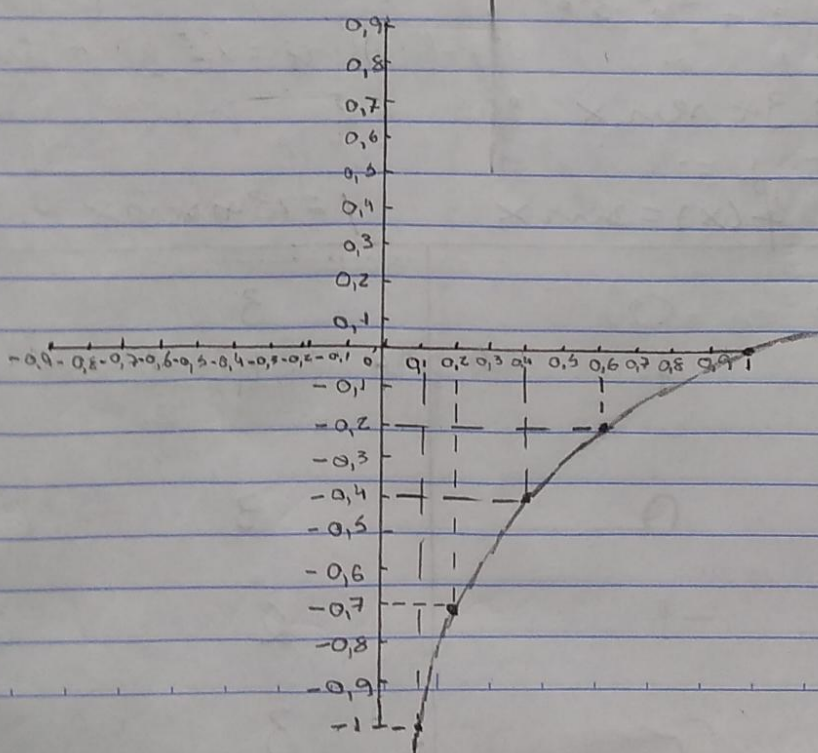 0,9
0,8
0,7
0,6
0,5
0,4
0,3
0,2
0,1
-0,9 -0,8 -0,7 -0,6 -0,5 -0,4 -0,3 -0,2 -0,1 0 0,1 0,2 0,3 0,4 0,5 0,6 0,7 0,8 0,9 1
-0,1
-0,2
-0,3
-0,4
-0,5
-0,6
-0,7
-0,8
-0,9
-1